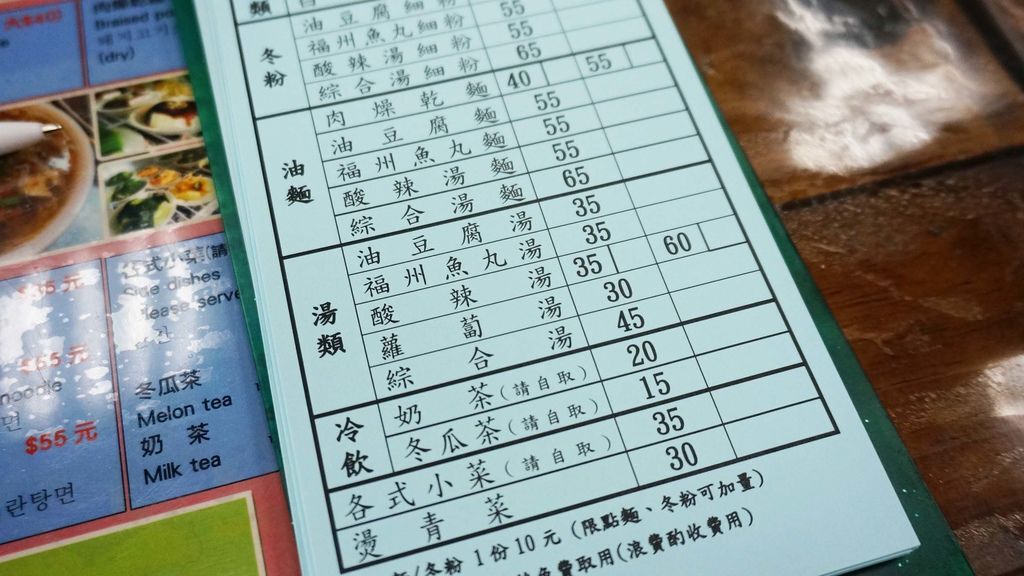 類
油豆腐細粉 55
冬粉
福州魚丸細粉 55
酸辣湯細粉 55
綜合湯細粉 65
油麵
肉燥乾麵 40 55
油豆腐麵 55
福州魚丸麵 55
酸辣湯麵 55
綜合湯麵 65
湯類
油豆腐湯 35
福州魚丸湯 35
酸辣湯 35 60
蘿蔔湯 30
綜合湯 45
冷飲
奶茶(請自取) 20
冬瓜茶(請自取) 15
各式小菜(請自取) 35
燙青菜 30
/冬粉 1份10元 (限點麵、冬粉可加量)
免費取用(浪費酌收費用)
(dry)
各式小菜(請
Side dishes
please serve
$65 元
noodle
면
$55 元
란탕면
冬瓜茶
Melon tea
奶 茶
Milk tea